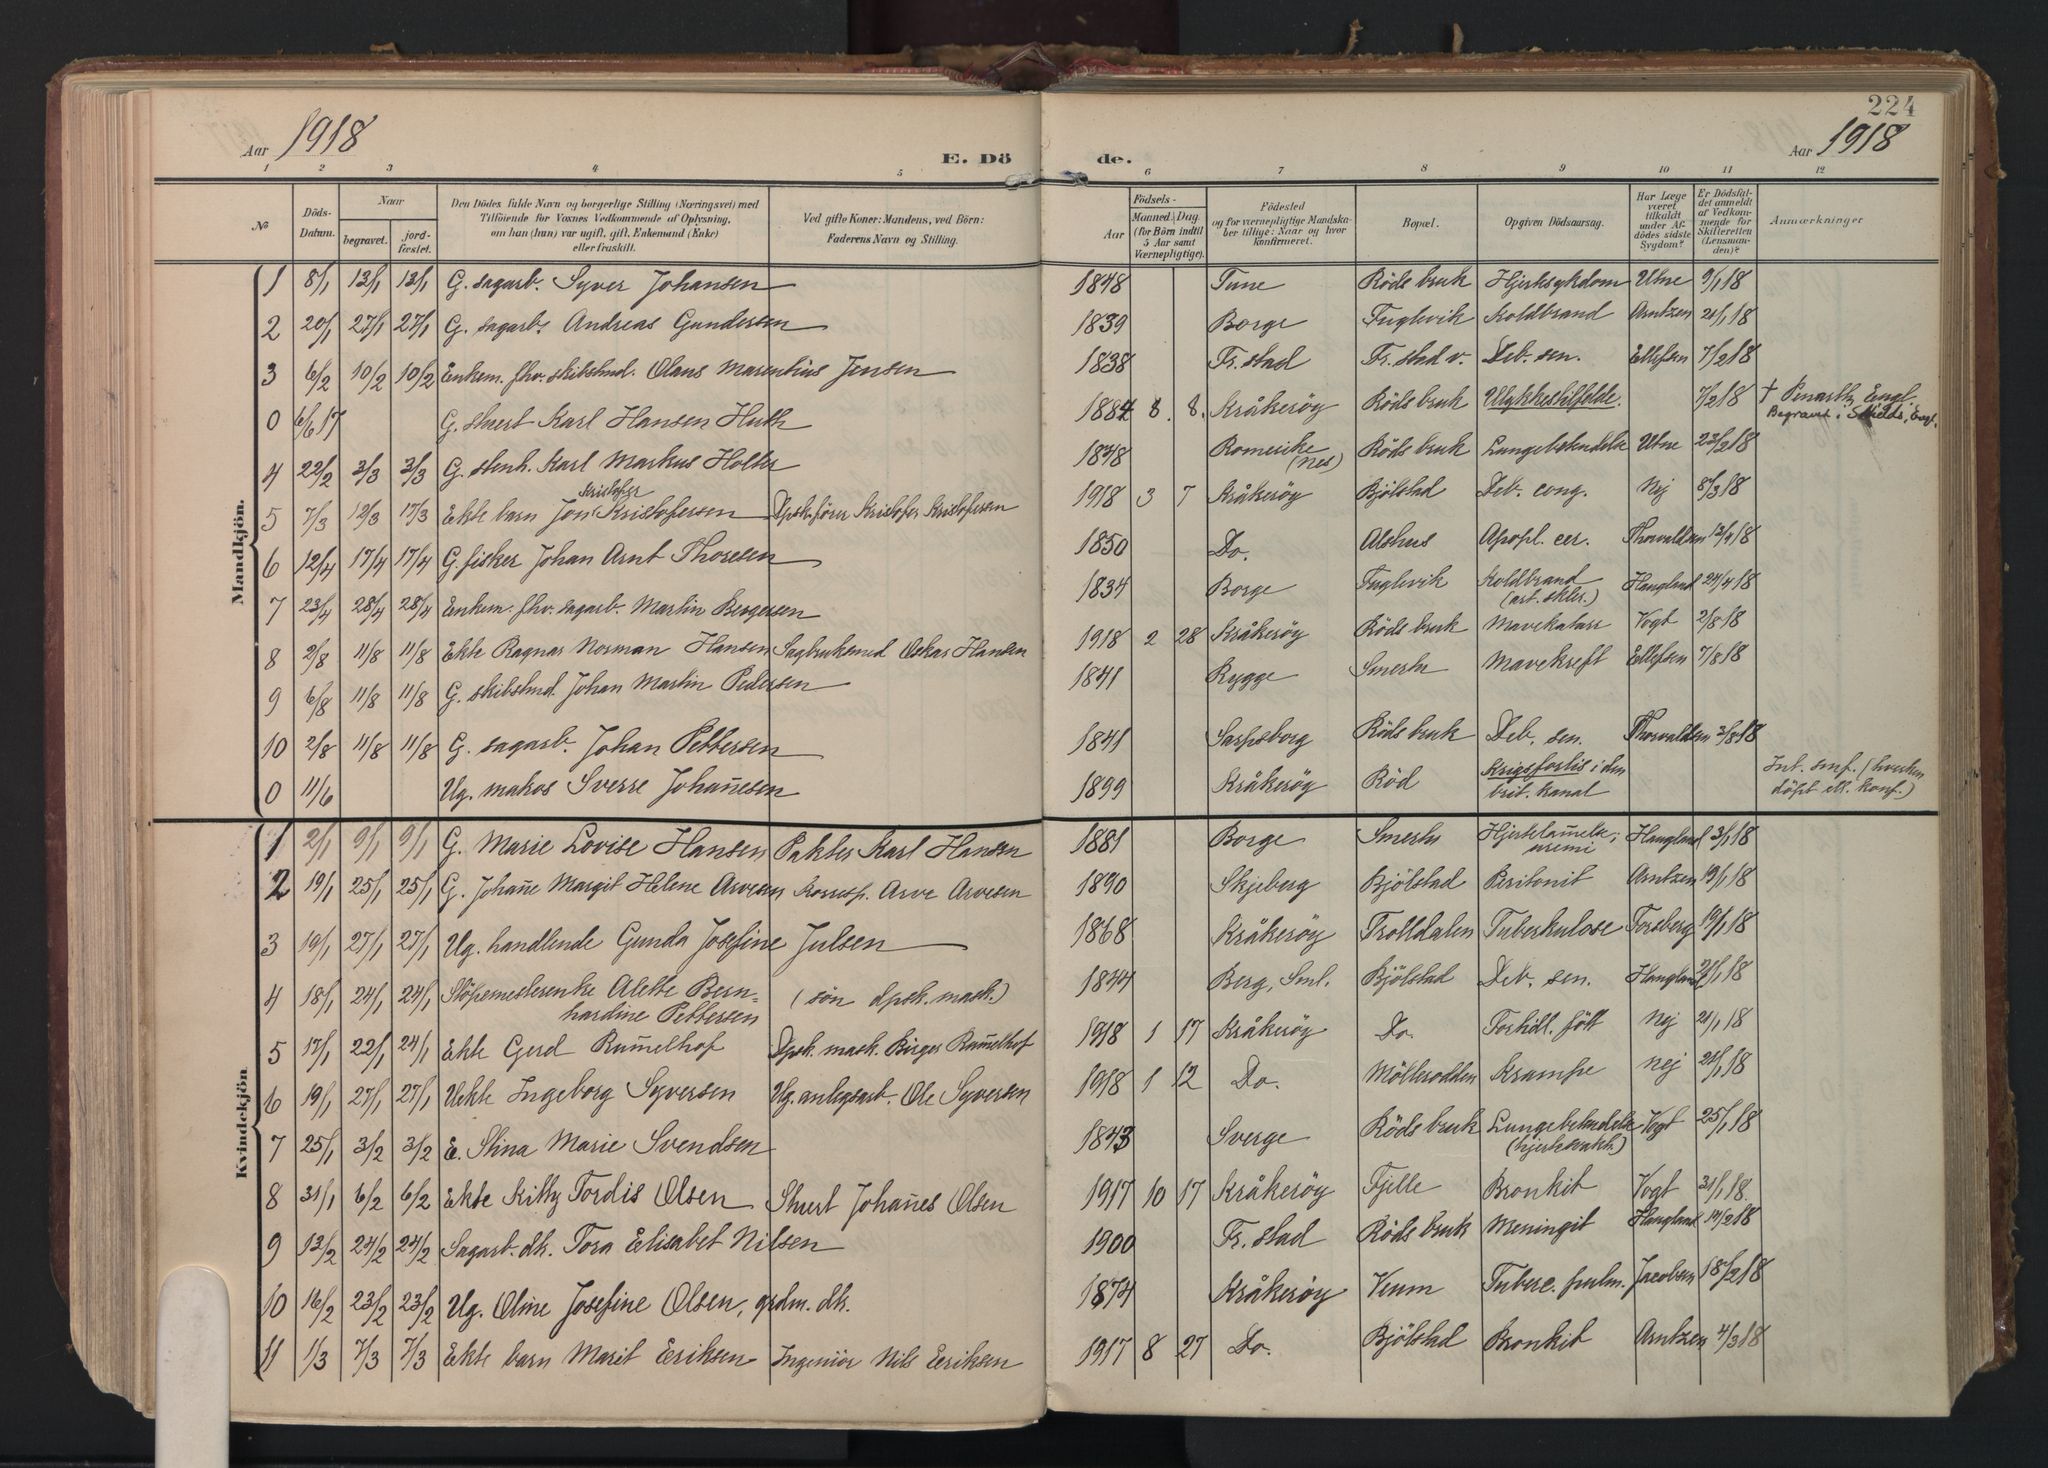 224
Aar 1918
E. Dö
de.
Aar 1918
1 2 3 4 5 6 7 8 9 10 11 12
№ Döds-Datum. Naar begravet. jord-fæstet. Den Dödes fulde Navn og borgerlige Stilling (Næringsvei) med Tilföiende for Voxnes Vedkommende af Oplysning, om han (hun) var ugift, gift, Enkemand (Enke) eller fraskilt. Ved gifte Koner: Mandens, ved Börn: Faderens Navn og Stilling. Födsels- Aar Maaned. Dag. (for Börn indtil 5 Aar samt Værnepligtige). Födested og for værnepligtige Mandskaber tillige: Naar og hvor konfirmeret. Bopæl. Opgiven Dödsaarsag. Har Læge været tilkaldt under Afdödes sidste Sygdom? Er Dödsfaldet anmeldt af Vedkommende for Skifteretten (Lensmanden)? Anmærkninger
Mandkjön.
1 8/1 13/1 13/1 G. sagarb. Syver Johansen 1848 Tune Röds bruk Hjertesykdom Utne 9/1 18
2 20/1 27/1 27/1 G. sagarb. Andreas Gundersen 1839 Borge Fuglevik Koldbrand Arntzen 21/1 18
3 6/2 10/2 10/2 Enkem. fhv. skibstmd. Olaus Marentius Jensen 1838 Fr.stad Fr.stad v. Deb. sen. Ellefsen 7/2 18
0 6/6 17 G. stuert Karl Hansen Huth 1884 8. 8. Kråkeröy Röds bruk Ulykkestilfelde. 7/2 18 † Penarth, Engl. Begravet i Shields, Engl.
4 22/2 3/3 3/3 G. stenh. Karl Markus Holter 1848 Romerike (Nes) Röds bruk Lungebetendelse Utne 23/2 18
5 7/3 12/3 17/3 Ekte barn Jon Kristofer Kristofersen Dpsk.förer Kristofer Kristofersen 1918 3 7 Kråkeröy Bjölstad Deb. cong. Nej 8/3 18
6 12/4 17/4 17/4 G. fisker Johan Arnt Thoresen 1850 Do. Alshus Apopl. cer. Thorvaldsen 13/4 18
7 23/4 28/4 28/4 Enkem. fhv. sagarb. Martin Bergersen 1834 Borge Fuglevik Koldbrand (art. skler.) Haugland 24/4 18
8 2/8 11/8 11/8 Ekte Ragnar Norman Hansen Sagbruksmed Oskar Hansen 1918 2 28 Kråkeröy Röds bruk Mavekatarr Vogt 2/8 18
9 6/8 11/8 11/8 G. skibstmd. Johan Martin Pedersen 1841 Rygge Smerta Mavekreft Ellefsen 7/8 18
10 2/8 11/8 11/8 G. sagarb. Johan Pettersen 1841 Sarpsborg Röds bruk Deb. sen. Thorvaldsen 3/8 18
0 11/6 Ug. matros Sverre Johan̄esen 1899 Kråkeröy Röd Krigsforlis i den brit. kanal Int. smf. (hverken döpt ell. konf.)
Kvindekjön
1 2/1 9/1 9/1 G. Marie Lovise Hansen Pakter Karl Hansen 1881 Borge Smerta Hjertelam̄else; uremi Haugland 3/1 18
2 19/1 25/1 25/1 G. Johan̄e Margit Helene Arvesen Korresp. Arve Arvesen 1890 Skjeberg Bjölstad Peritonit Arntzen 19/1 18
3 19/1 27/1 27/1 Ug. handlende Gunda Josefine Julsen 1868 Kråkeröy Trolldalen Tuberkulose Forsberg 19/1 18
4 18/1 24/1 24/1 Stöpemesterenke Alette Bern-
hardine Pettersen (sön dpsk. mask.) 1844 Berg, Sml. Bjölstad Deb. sen. Haugland 21/1 18
5 17/1 22/1 24/1 Ekte Gerd Rum̄elhof Dpsk. mask. Birger Rum̄elhof 1918 1 17 Kråkeröy Do. Forhöll. fött Nej 21/1 18
6 19/1 27/1 27/1 Uekte Ingeborg Syversen Ug. anlegsarb. Ole Syversen 1918 1 12 Do. Möllerodden Krampe Nej 21/1 18
7 25/1 3/2 3/2 E. Stina Marie Svendsen 1843 Sverge Röds bruk Lungebetendelse Vogt 25/1 18
8 31/1 6/2 6/2 Ekte Kitty Tordis Olsen Stuert Johan̄es Olsen 1917 10 17 Kråkeröy Fjelle Bronkit Vogt 31/1 18.
9 13/2 24/2 24/2 Sagarb. dt. Tora Elisabet Nilsen 1900 Fr.stad Röds bruk Meningit Haugland 14/2 18
10 16/2 23/2 23/2 Ug. Oline Josefine Olsen, grdm. dt. 1874 Kråkeröy Veum Tuberc. pulm. Jacobsen 18/2 18
11 1/3 7/3 7/3 Ekte barn Marit Eriksen Ingeniör Nils Eriksen 1917 8 27 Do. Bjölstad Bronkit Arntzen 4/3 18